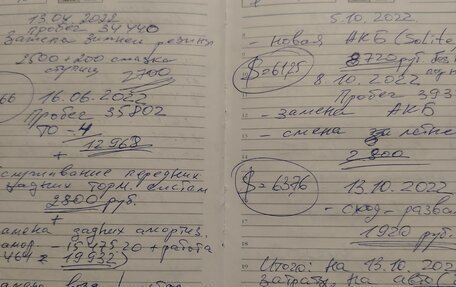 13.04.2022
Пробег 34440
Замена зимней резины
2500+200 смазка
ступиц
2700
66
16.06.2022
Пробег 35802
ТО-4
12968
+
служивание передних
задних торм. систем
2800 руб.
+
амена задних амортиз.
15475.20 + работа
464 = 19932
5.10.2022
- новая АКБ (Solite,
8720 руб. без
$=61,25
8.10.2022
Пробег 393
- замена АКБ
- смена летне
2800
$=63,76
13.10.2022
- сход-развал
1920 руб.
Итого: на 13.10.202
затраты на авто